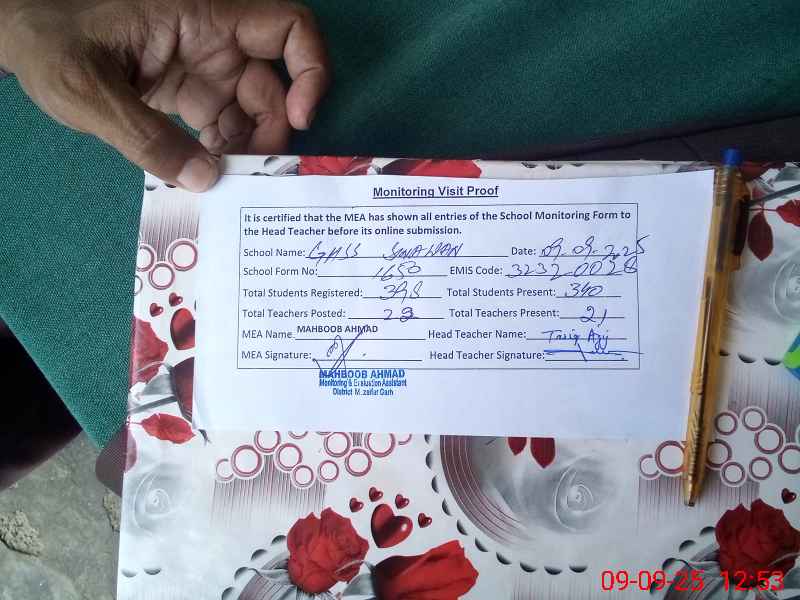 Monitoring Visit Proof
It is certified that the MEA has shown all entries of the School Monitoring Form to
the Head Teacher before its online submission.
School Name: GHSS SINAWAN Date: 09.09.2025
School Form No: 1650 EMIS Code: 32320028
Total Students Registered: 398 Total Students Present: 340
Total Teachers Posted: 23 Total Teachers Present: 21
MEA Name: MAHBOOB AHMAD Head Teacher Name: Tariq
MEA Signature: Head Teacher Signature:
MAHBOOB AHMAD
Monitoring & Evaluation Assistant
District Muzaffar Garh
09-09-25 12:53